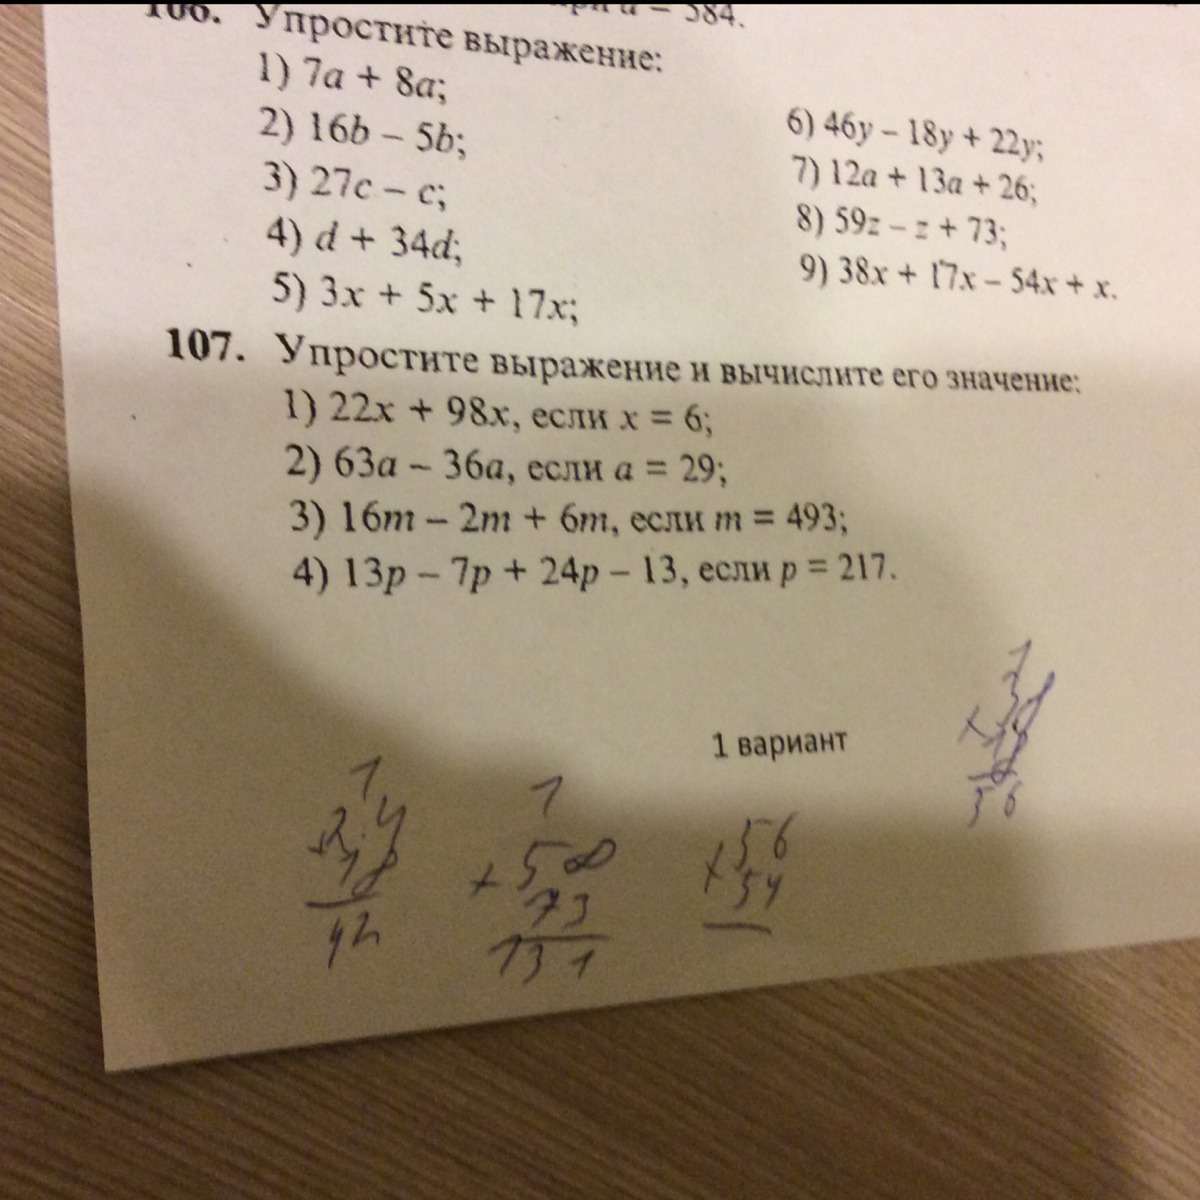 = 584.
106. Упростите выражение:
1) 7a + 8a;
2) 16b – 5b;
3) 27c – c;
4) d + 34d;
5) 3x + 5x + 17x;
6) 46y – 18y + 22y;
7) 12a + 13a + 26;
8) 59z – z + 73;
9) 38x + 17x – 54x + x.
107. Упростите выражение и вычислите его значение:
1) 22x + 98x, если x = 6;
2) 63a – 36a, если a = 29;
3) 16m – 2m + 6m, если m = 493;
4) 13p – 7p + 24p – 13, если p = 217.
1 вариант
1
24
18
42
1
+ 58
73
131
+ 56
54
56